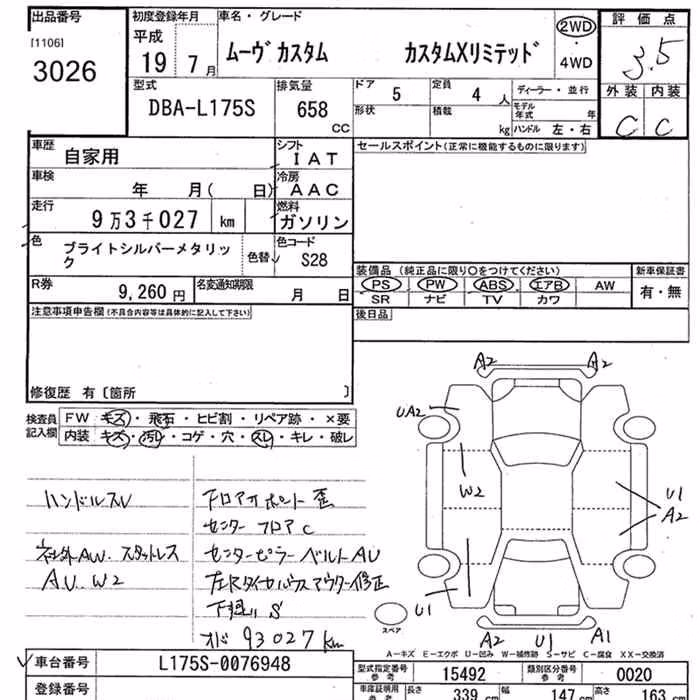 出品番号
[1106]
3026
初度登録年月
平成
19 7月
車名・グレード
ムーヴカスタム カスタムXリミテッド
2WD
・
4WD
評価点
3.5
外装 内装
C C
型式
DBA-L175S
排気量
658
CC
ドア 5
定員 4 人
形状
積載 kg
ディーラー・並行
モデル年式 年
ハンドル 左・右
車歴
自家用
シフト
IAT
車検
年 月( 日)
冷房
AAC
走行
9万3千027 km
燃料
ガソリン
色
ブライトシルバーメタリッ
ク
色替
色コード
S28
R券
9,260円
名変通知期限
月 日
セールスポイント(正常に機能するものに限ります)
装備品 (純正品に限り○をつけてください)
PS PW ABS エアB AW
SR ナビ TV カワ
新車保証書
有・無
後日品
注意事項申告欄(不具合内容等は具体的に記入して下さい)
修復歴 有〔箇所 〕
検査員
記入欄
FW キズ・飛石・ヒビ割・リペア跡・×要
内装 キズ・汚レ・コゲ・穴・スレ・キレ・破レ
ハンドルスレ
社外AW.スタットレス
AU.W2
フロアサポート歪
センターフロアC
センターピラーベルトAU
下廻りS
オド93027km
A2 A2
UA2
W2
U1
A2
U1
A2 U1 A1
スペア
A－キズ E－エクボ U－凹み W－補修跡 S－サビ C－腐食 XX－交換済
車台番号
L175S-0076948
登録番号
型式指定番号
参考
15492
類別区分番号
参考
0020
車庫証明用
参考
長さ 339 cm
幅 147 cm
高さ 163 cm